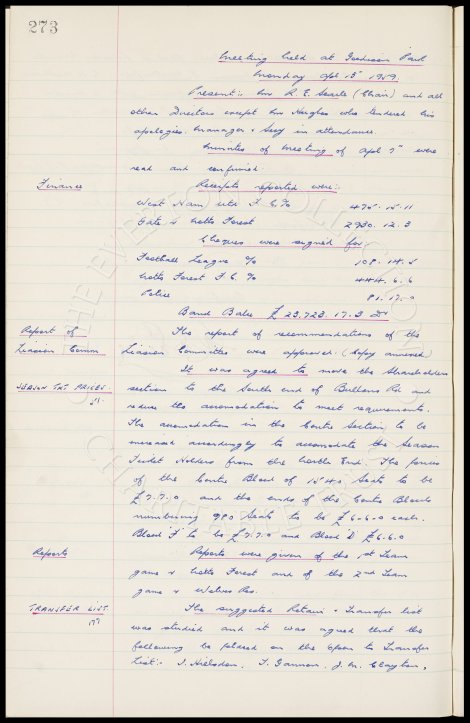 273
Meeting held at Goodison Park
Monday Apl 13th 1959.
Present:- Mr R. E. Searle (Chair) and all
other Directors except Mr Hughes who tendered his
apologies. Manager & Secy in attendance.
Minutes of Meeting of Apl 7th were
read and confirmed.
Finance
Receipts reported were:-
West Ham Utd F.C. 475. 15. 11
Gate v Notts Forest 2930. 12. 3
Cheques were signed for:
Football League 108. 14. 5
Notts Forest F.C. 444. 6. 6
Police 81. 17. 0
Bank Balce £ 23,723. 17. 3 Dr
Report of
Liaison Comm
The report of recommendations of the
Liaison Committee were approved. (Copy annexed)
SEASON TKT PRICES
It was agreed to move the Shareholders
section to the South end of Bullens Rd and
reduce the accomodation to meet requirements.
The accomodation in the Centre Section to be
increased accordingly to accomodate the Season
Ticket Holders from the North End. The prices
of the Centre Block of 1540 seats to be
£7.7.0 and the ends of the Centre Block
numbering 980 seats to be £6-6-0 each.
Block 'F' to be £7.7.0 and Block D £6.6.0
Reports
Reports were given of the 1st Team
game v Notts Forest and of the 2nd Team
game v Wolves Res.
TRANSFER LIST
The suggested Retain & Transfer list
was studied and it was agreed that the
following be placed on the Open to Transfer
List:- J. Nielsdon. T. Gannon. J. M. Clayton.
THE EVERTON COLLECTION